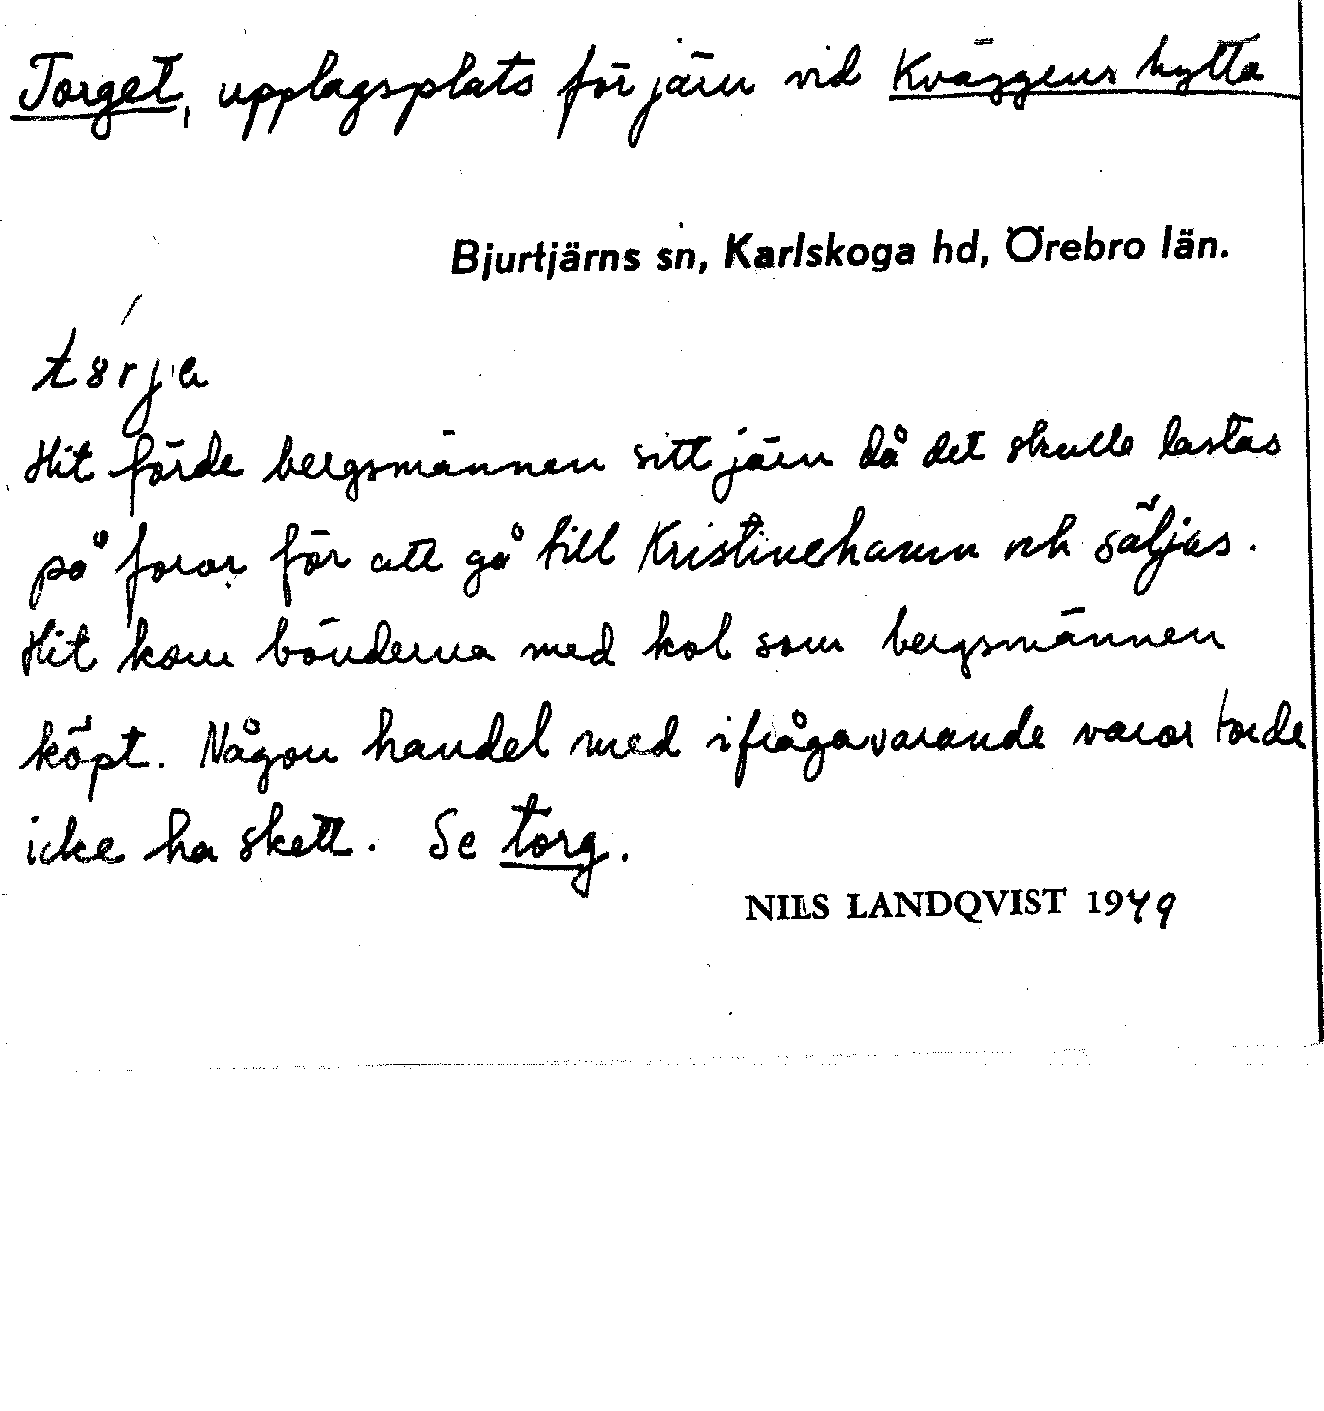 Torget, upplagsplats för järn vid Kväggens hytta
Bjurtjärns sn, Karlskoga hd, Örebro län.
Hit förde bergsmännen sitt järn då det skulle lastas
på foror för att gå till Kristinehamn och säljas.
Hit kom bönderna med kol som bergsmännen
köpt. Någon handel med ifrågavarande varor torde
icke ha skett. Se torg.
NILS LANDQVIST 1949